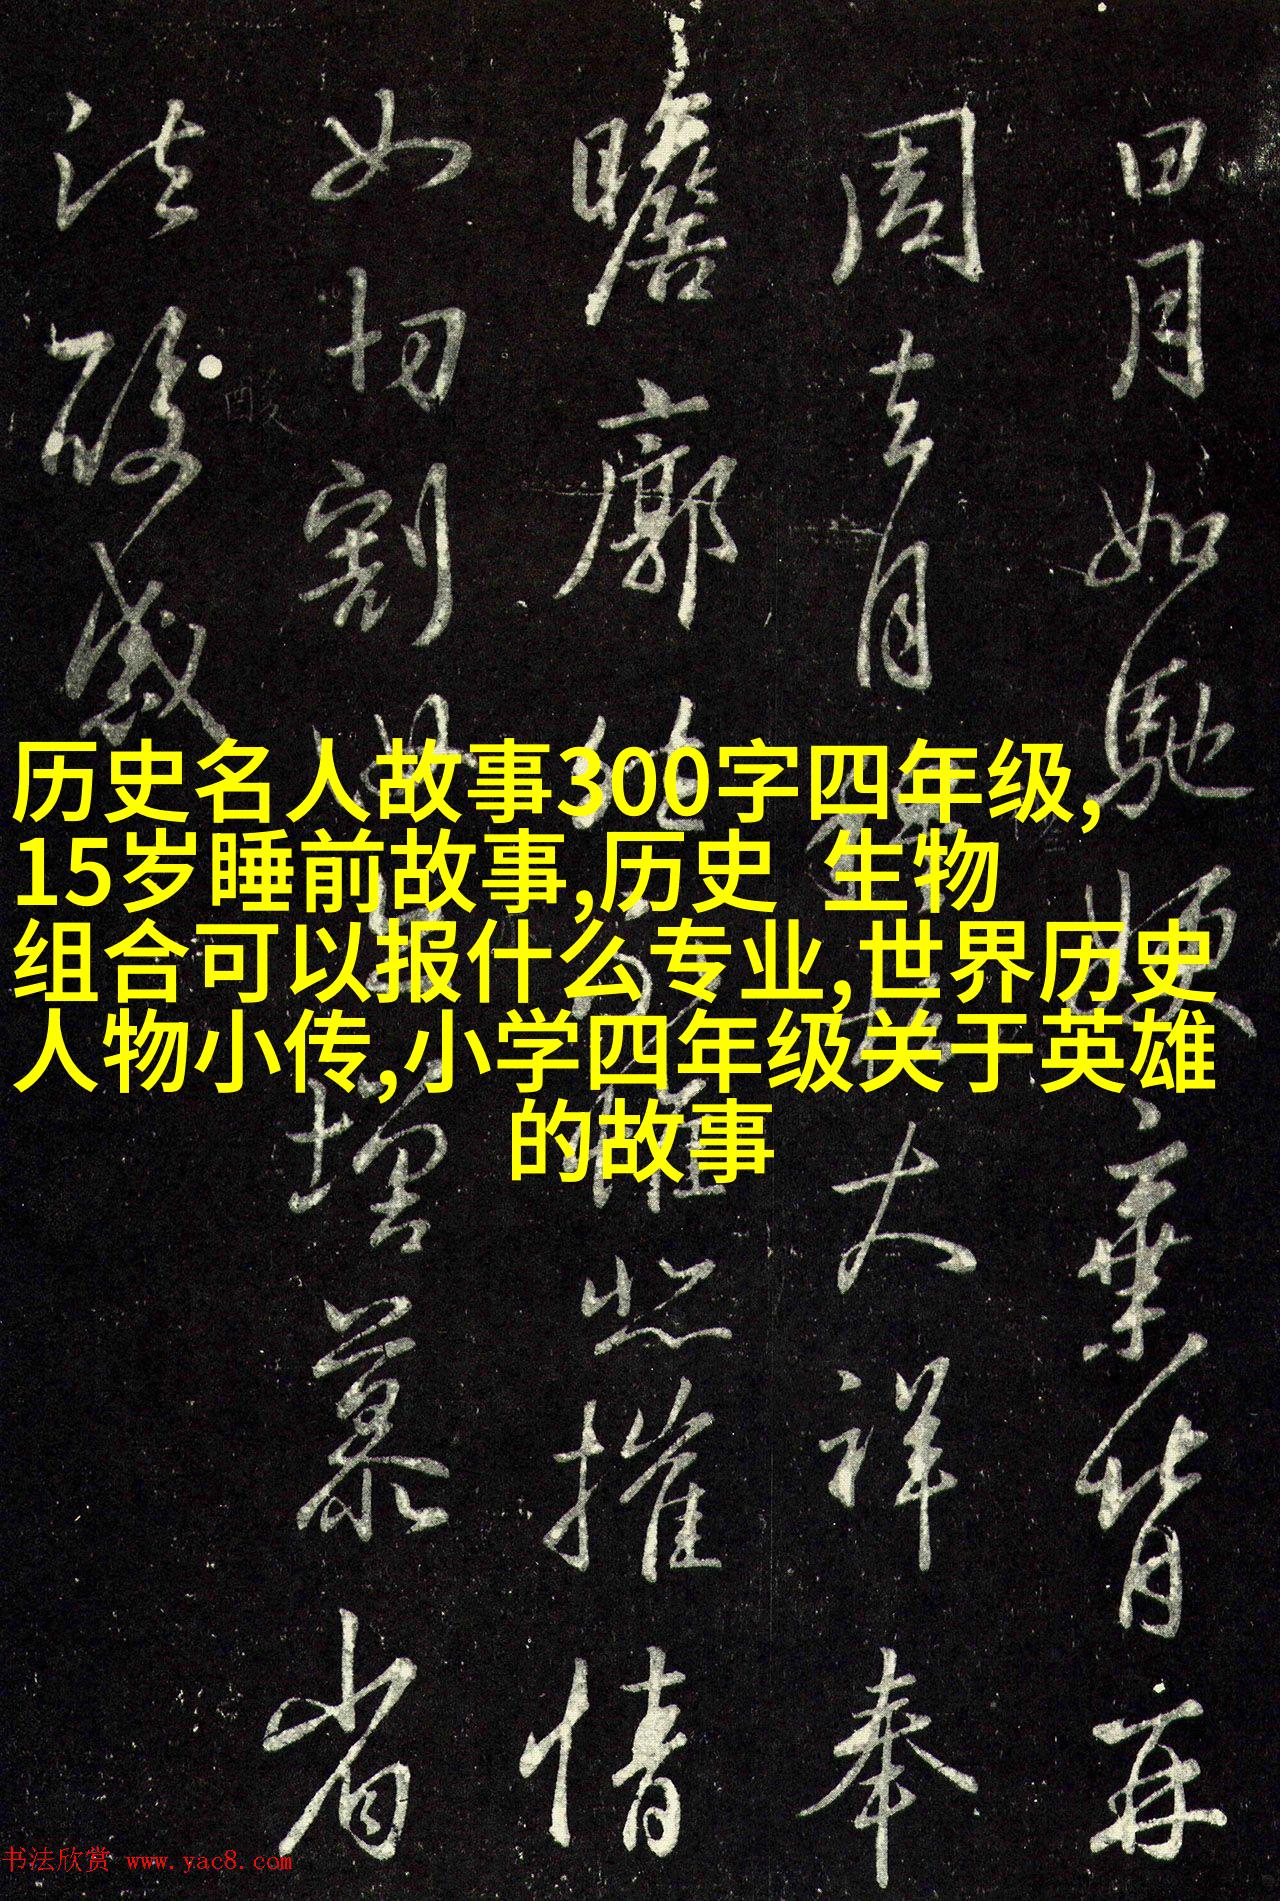 历史名人故事300字四年级,
15岁睡前故事,历史 生物
组合可以报什么专业,世界历史
人物小传,小学四年级关于英雄
的故事
日月如馳嫂棄背再
周去月大祥奉
瞻廓然惟悲摧情
如切割增慕省
酸感
酸
书法欣赏 www.yac8.com